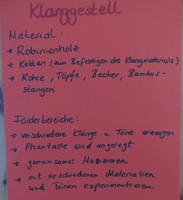 Klanggestell
Material:
• Robinienholz
• Ketten (zum Befestigen des Klangmaterials)
• Rohre, Töpfe, Becher, Bambus-
stangen
Förderbereiche:
• verschiedene Klänge u. Töne erzeugen
• Phantasie wird angeregt
• gemeinsames Musizieren
• mit verschiedenen Materialien
und Tönen experimentieren